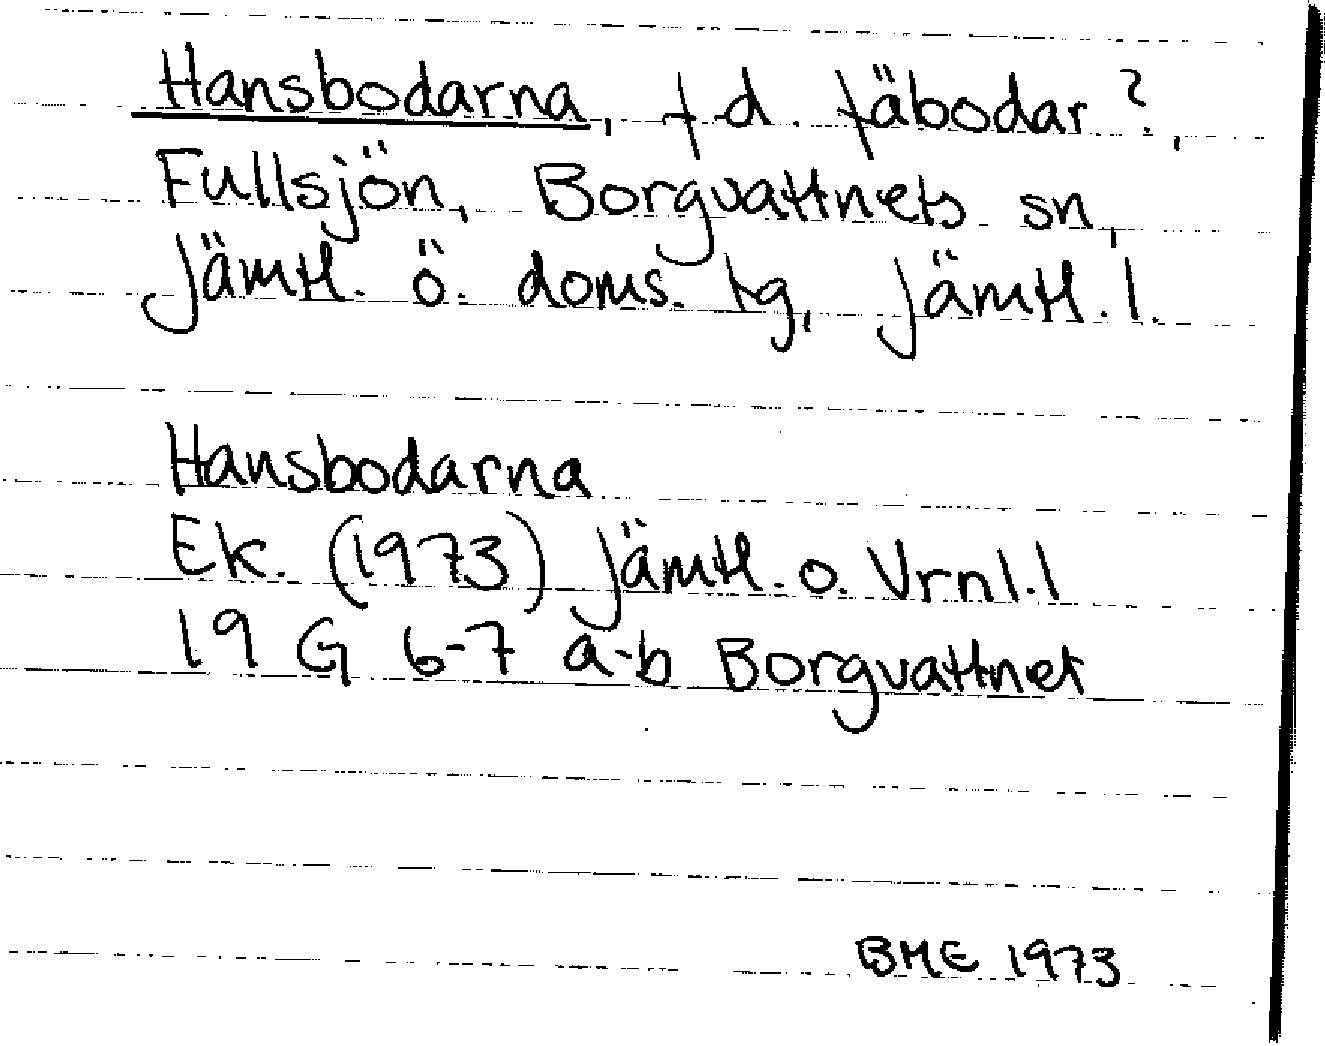 Hansbodarna, f d. fäbodar?,
Fullsjön, Borgvattnets sn,
Jämtl. ö. doms. tg, Jämtl. l.
Hansbodarna
Ek. (1973) Jämtl. o. Vrnl. l
19 G 6-7 a-b Borgvattnet
BME 1973